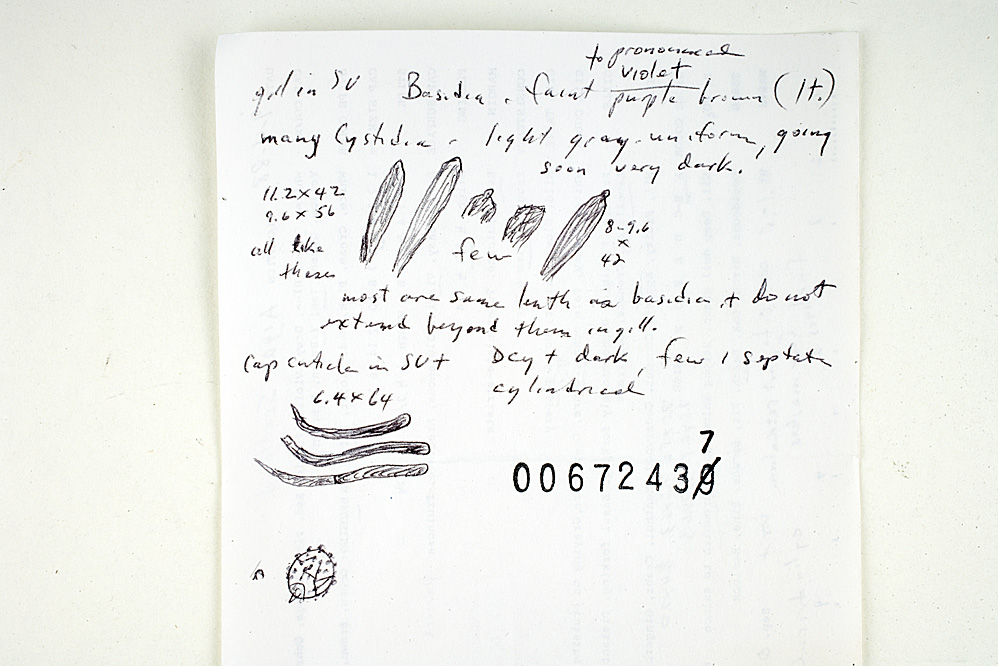 to pronounced
violet
gill in SV Basidia. faint purple brown (lt.)
many Cystidia - light gray-uniform, going
soon very dark.
11.2 x 42
9.6 x 56
all like
these
few
8-9.6
x
42
most are same lenth as basidia + do not
extend beyond them in gill.
cap cuticle in SV+ Dcy + dark, few 1 septate
cylindrical
6.4 x 64
7
00672439